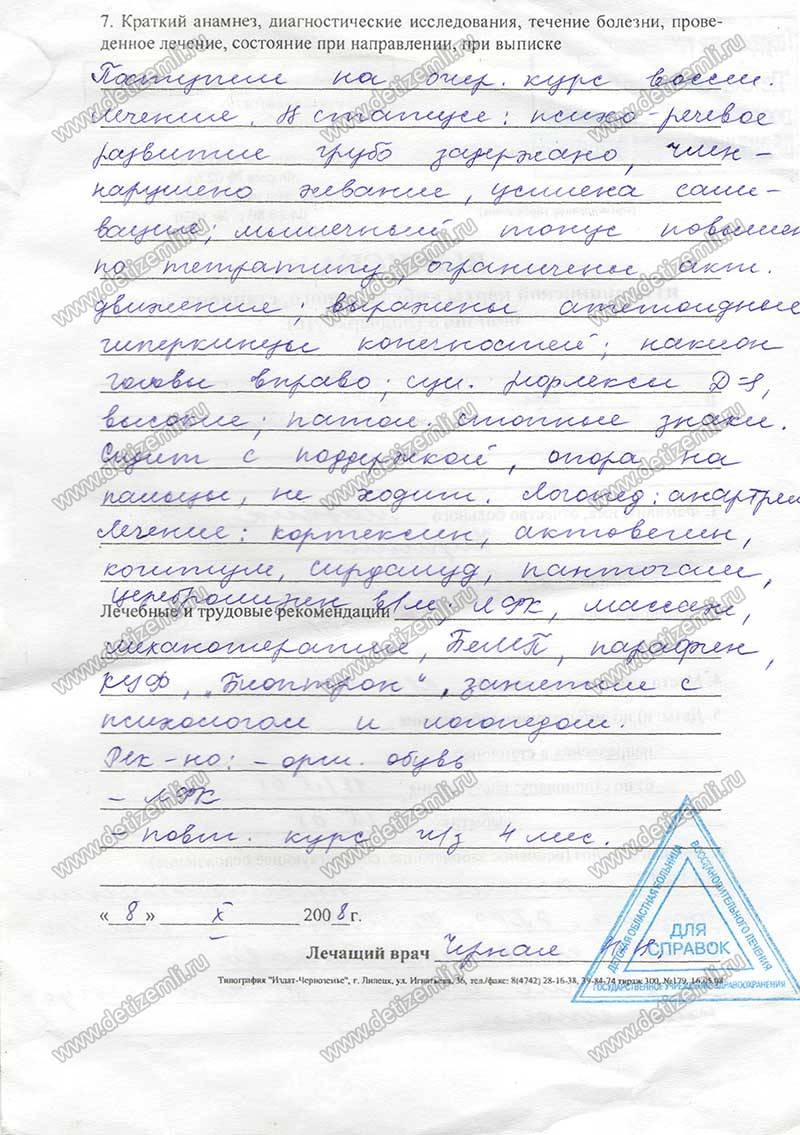 7. Краткий анамнез, диагностические исследования, течение болезни, прове-
денное лечение, состояние при направлении, при выписке
Поступил на очер. курс восст.
лечение. В статусе: психо-речевое
развитие грубо задержано, ЧМН-
нарушено жевание, усилена сали-
вация; мышечный тонус повышен
по тетратипу, ограничены акт.
движения; выражены атетоидные
гиперкинезы конечностей; наклон
головы вправо; сух. рефлексы D=S,
высокие; патол. стопные знаки.
Сидит с поддержкой, опора на
пальцы, не ходит. Логопед: анартрия
Лечение: кортексин, актовегин,
когитум, сирдалуд, пантогам,
церебролизин в/м; ЛФК, массаж,
Лечебные и трудовые рекомендации
механотерапия, БеМП, парафин,
КУФ, „Биоптрон“, занятия с
психологом и логопедом.
Рек-но: - орт. обувь
- ЛФК
- повт. курс ч/з 4 мес.
« 8 » X 2008 г.
Лечащий врач Черная
Типография "Издат-Черноземье", г. Липецк, ул. Игнатьева, 36, тел./факс: 8(4742) 28-16-38, 39-84-74 тираж 300, №179, 16.05.08
ДЕТСКАЯ ОБЛАСТНАЯ БОЛЬНИЦА
ВОССТАНОВИТЕЛЬНОГО ЛЕЧЕНИЯ
ГОСУДАРСТВЕННОЕ УЧРЕЖДЕНИЕ ЗДРАВООХРАНЕНИЯ
ДЛЯ
СПРАВОК
www.detizemli.ru